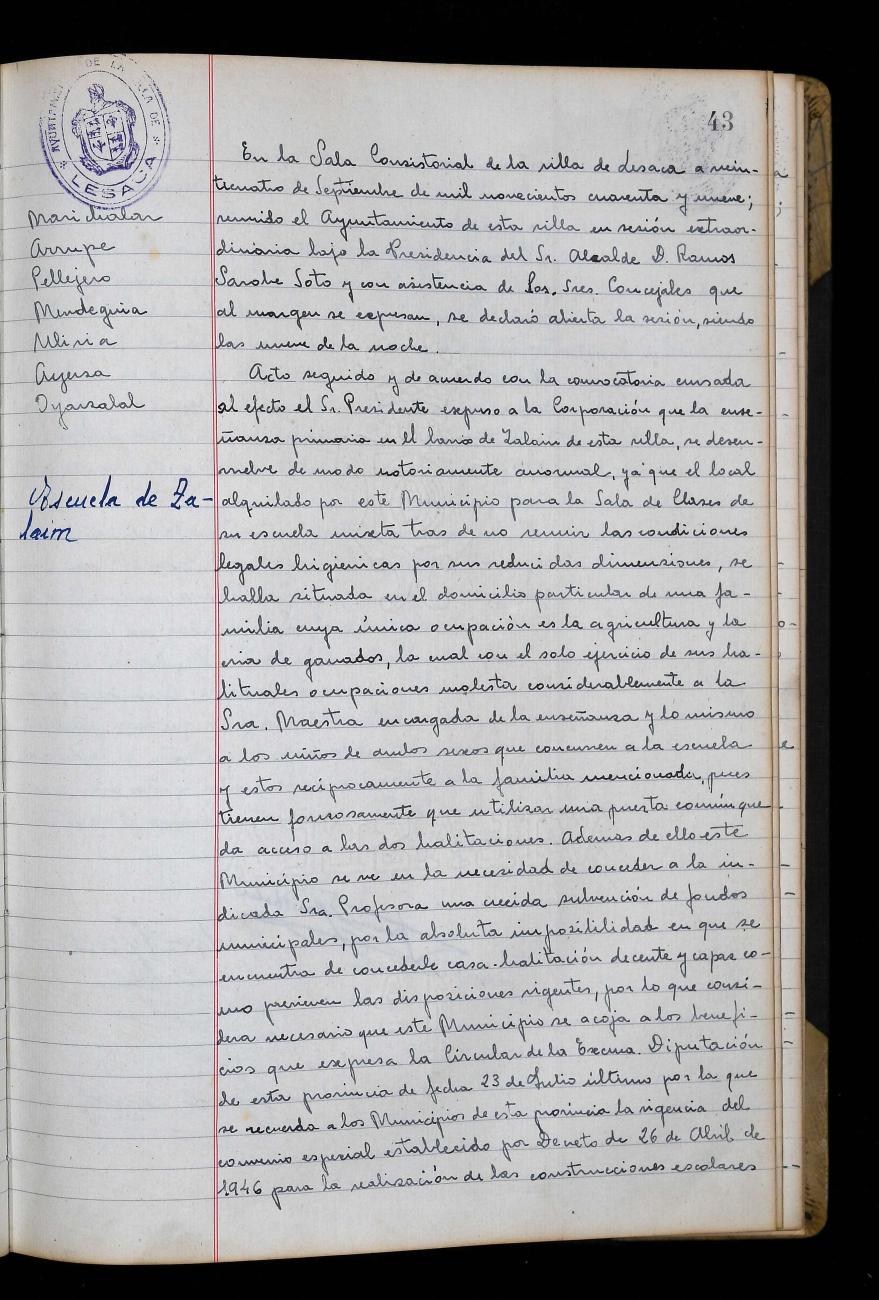 AYUNTAMIENTO DE LA VILLA DE
LESACA
43
Marichalar
Arrupe
Pellejero
Mendeguia
Ayerza
Oyarzabal
Escuela de Za-
lain
En la Sala Consistorial de la villa de Lesaca a vein-
tecuatro de Septiembre de mil novecientos cuarenta y nueve;
reunido el Ayuntamiento de esta villa en sesión extraor-
dinaria bajo la Presidencia del Sr. Alcalde D. Ramos
Sarobe Soto y con asistencia de Los. Sres. Concejales que
al margen se expresan, se declaró abierta la sesión, siendo
las nueve de la noche.
Acto seguido y de acuerdo con la convocatoria cursada
al efecto el Sr. Presidente expuso a la Corporación que la ense-
ñanza primaria en El barrio de Zalain de esta villa, se desen-
vuelve de modo notoriamente anormal, ya que el local
alquilado por este Municipio para la Sala de Clases de
su escuela mixta tras de no reunir las condiciones
legales higienicas por sus reducidas dimensiones, se
halla situada en el domicilio particular de una fa-
milia cuya única ocupación es la agricultura y la
cria de ganados, la cual con el solo ejercicio de sus ha-
bituales ocupaciones molesta considerablemente a la
Sra. Maestra encargada de la enseñanza y lo mismo
a los niños de ambos sexos que concurren a la escuela
y estos reciprocamente a la familia mencionada, pues
tienen forzosamente que utilizar una puerta común que
da acceso a las dos habitaciones. Ademas de ello este
Municipio se ve en la necesidad de conceder a la in-
dicada Sra. Profesora una crecida subvención de fondos
municipales, por la absoluta imposibilidad en que se
encuentra de concederle casa-habitación decente y capaz co-
mo previenen las disposiciones vigentes, por lo que consi-
dera necesario que este Municipio se acoja a los benefi-
cios que expresa la Circular de la Excma. Diputación
de esta provincia de fecha 23 de Julio último por la que
se recuerda a los Municipios de esta provincia la vigencia del
convenio especial establecido por Decreto de 26 de Abril de
1946 para la realización de las construcciones escolares